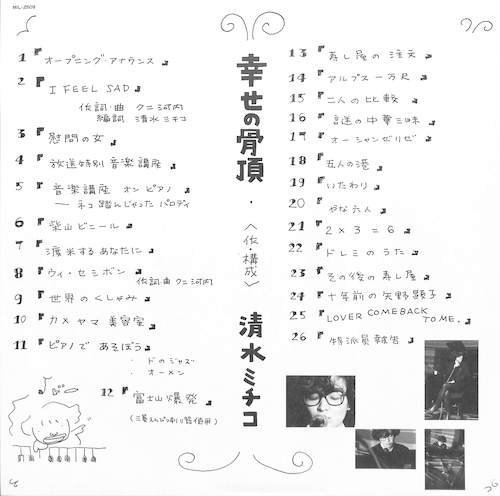 MIL-2509
1 『オープニング・アナウンス』
2 『I FEEL SAD』
作詞・曲 クニ河内
編詞 清水ミチコ
3 『慰問の女』
4 『放送特別音楽講座』
5 『音楽講座 オン ピアノ
──ネコ踏んじゃった パロディ』
6 『柴山ビニール』
7 『渡米するあなたに』
8 『ウィ・セミボン』
作詞曲 クニ河内
9 『世界のくしゃみ』
10 『カメヤマ 美容室』
11 『ピアノで あそぼう』
・ドのジャズ
・オーメン
12 『富士山爆発』
幸せの骨頂・〈作・構成〉清水ミチコ
13 『寿し屋の注文』
14 『アルプス一万尺』
15 『二人の比較』
16 『言送の中華三昧』
17 『オーシャンゼリゼ』
18 『五人の港』
19 『いたわり』
20 『やな六人』
21 『2×3=6』
22 『ドレミのうた』
23 『その後の寿し屋』
24 『十年前の矢野顕子』
25 『LOVER COME BACK
TO ME.』
26 『特派員報告』